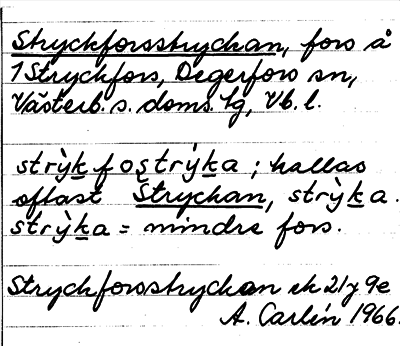 Stryckforsstryckan, fors å
1 Stryckfors, Degerfors sn,
Västerb. s. doms. lg, Vb. l.
strỳk foştrýka ; kallas
oftast Stryckan, strỳka.
strỳka = mindre fors.
Stryckforsstryckan ek 21J 9e
A. Carlin 1966.